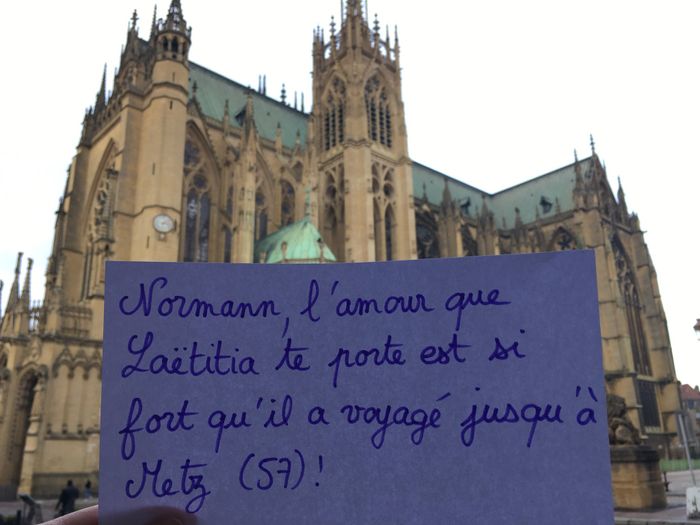 Normann, l'amour que
Laëtitia te porte est si
fort qu'il a voyagé jusqu'à
Metz (57)!